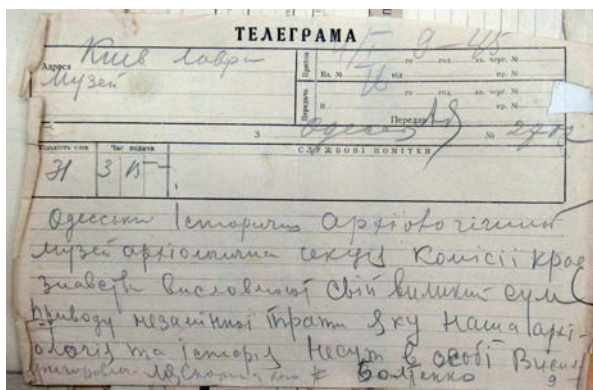 ТЕЛЕГРАМА
Адреса Київ лавра
Музей
Прийом го год. хв. черг. №
Вл. № від кр. №
Передача го год. хв. черг. №
В кр. №
Передав
З Одеса №
Кількість слів Час подачи СЛУЖБОВІ ПОМІТКИ
31 3 15
Одесський Історичн архіологічний
музей архіологична секція Комісіі крає
знавств висловлюют свій великий сум
приводу незамінної трати яку Наша архі-
ологія та історія Несут в особі
Болтенко
9